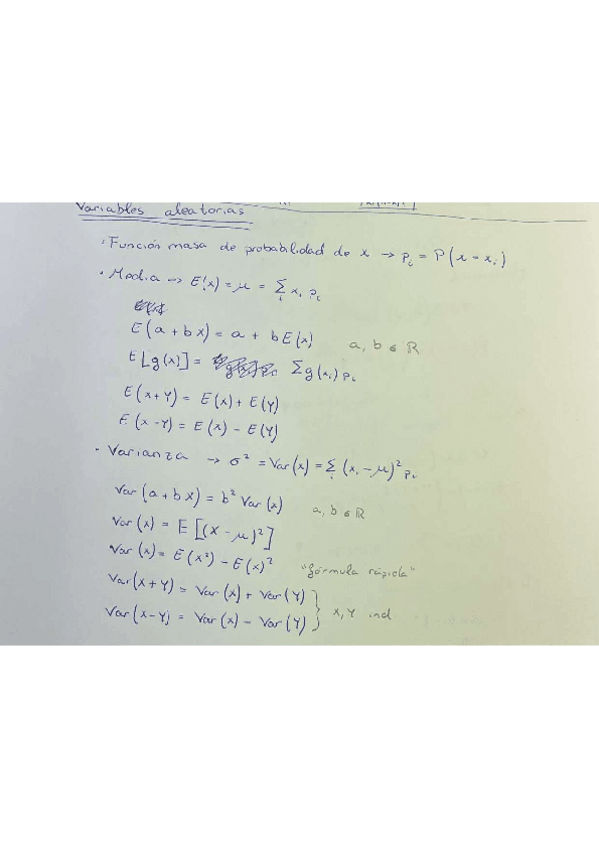 Variables aleatorias
· Función masa de probabilidad de x → pᵢ = P(x = xᵢ)
· Media → E(x) = μ = Σᵢ xᵢ pᵢ
E(a + bx) = a + bE(x)   a, b ∈ ℝ
E[g(x)] = Σg(xᵢ)pᵢ
E(x+Y) = E(x) + E(Y)
E(x-Y) = E(x) - E(Y)
· Varianza → σ² = Var(x) = Σᵢ (xᵢ - μ)² pᵢ
Var(a + bx) = b² Var(x)   a, b ∈ ℝ
Var(x) = E[(x - μ)²]
Var(x) = E(x²) - E(x)²   "fórmula rápida"
Var(x+Y) = Var(x) + Var(Y)
Var(x-Y) = Var(x) - Var(Y) } x, Y ind